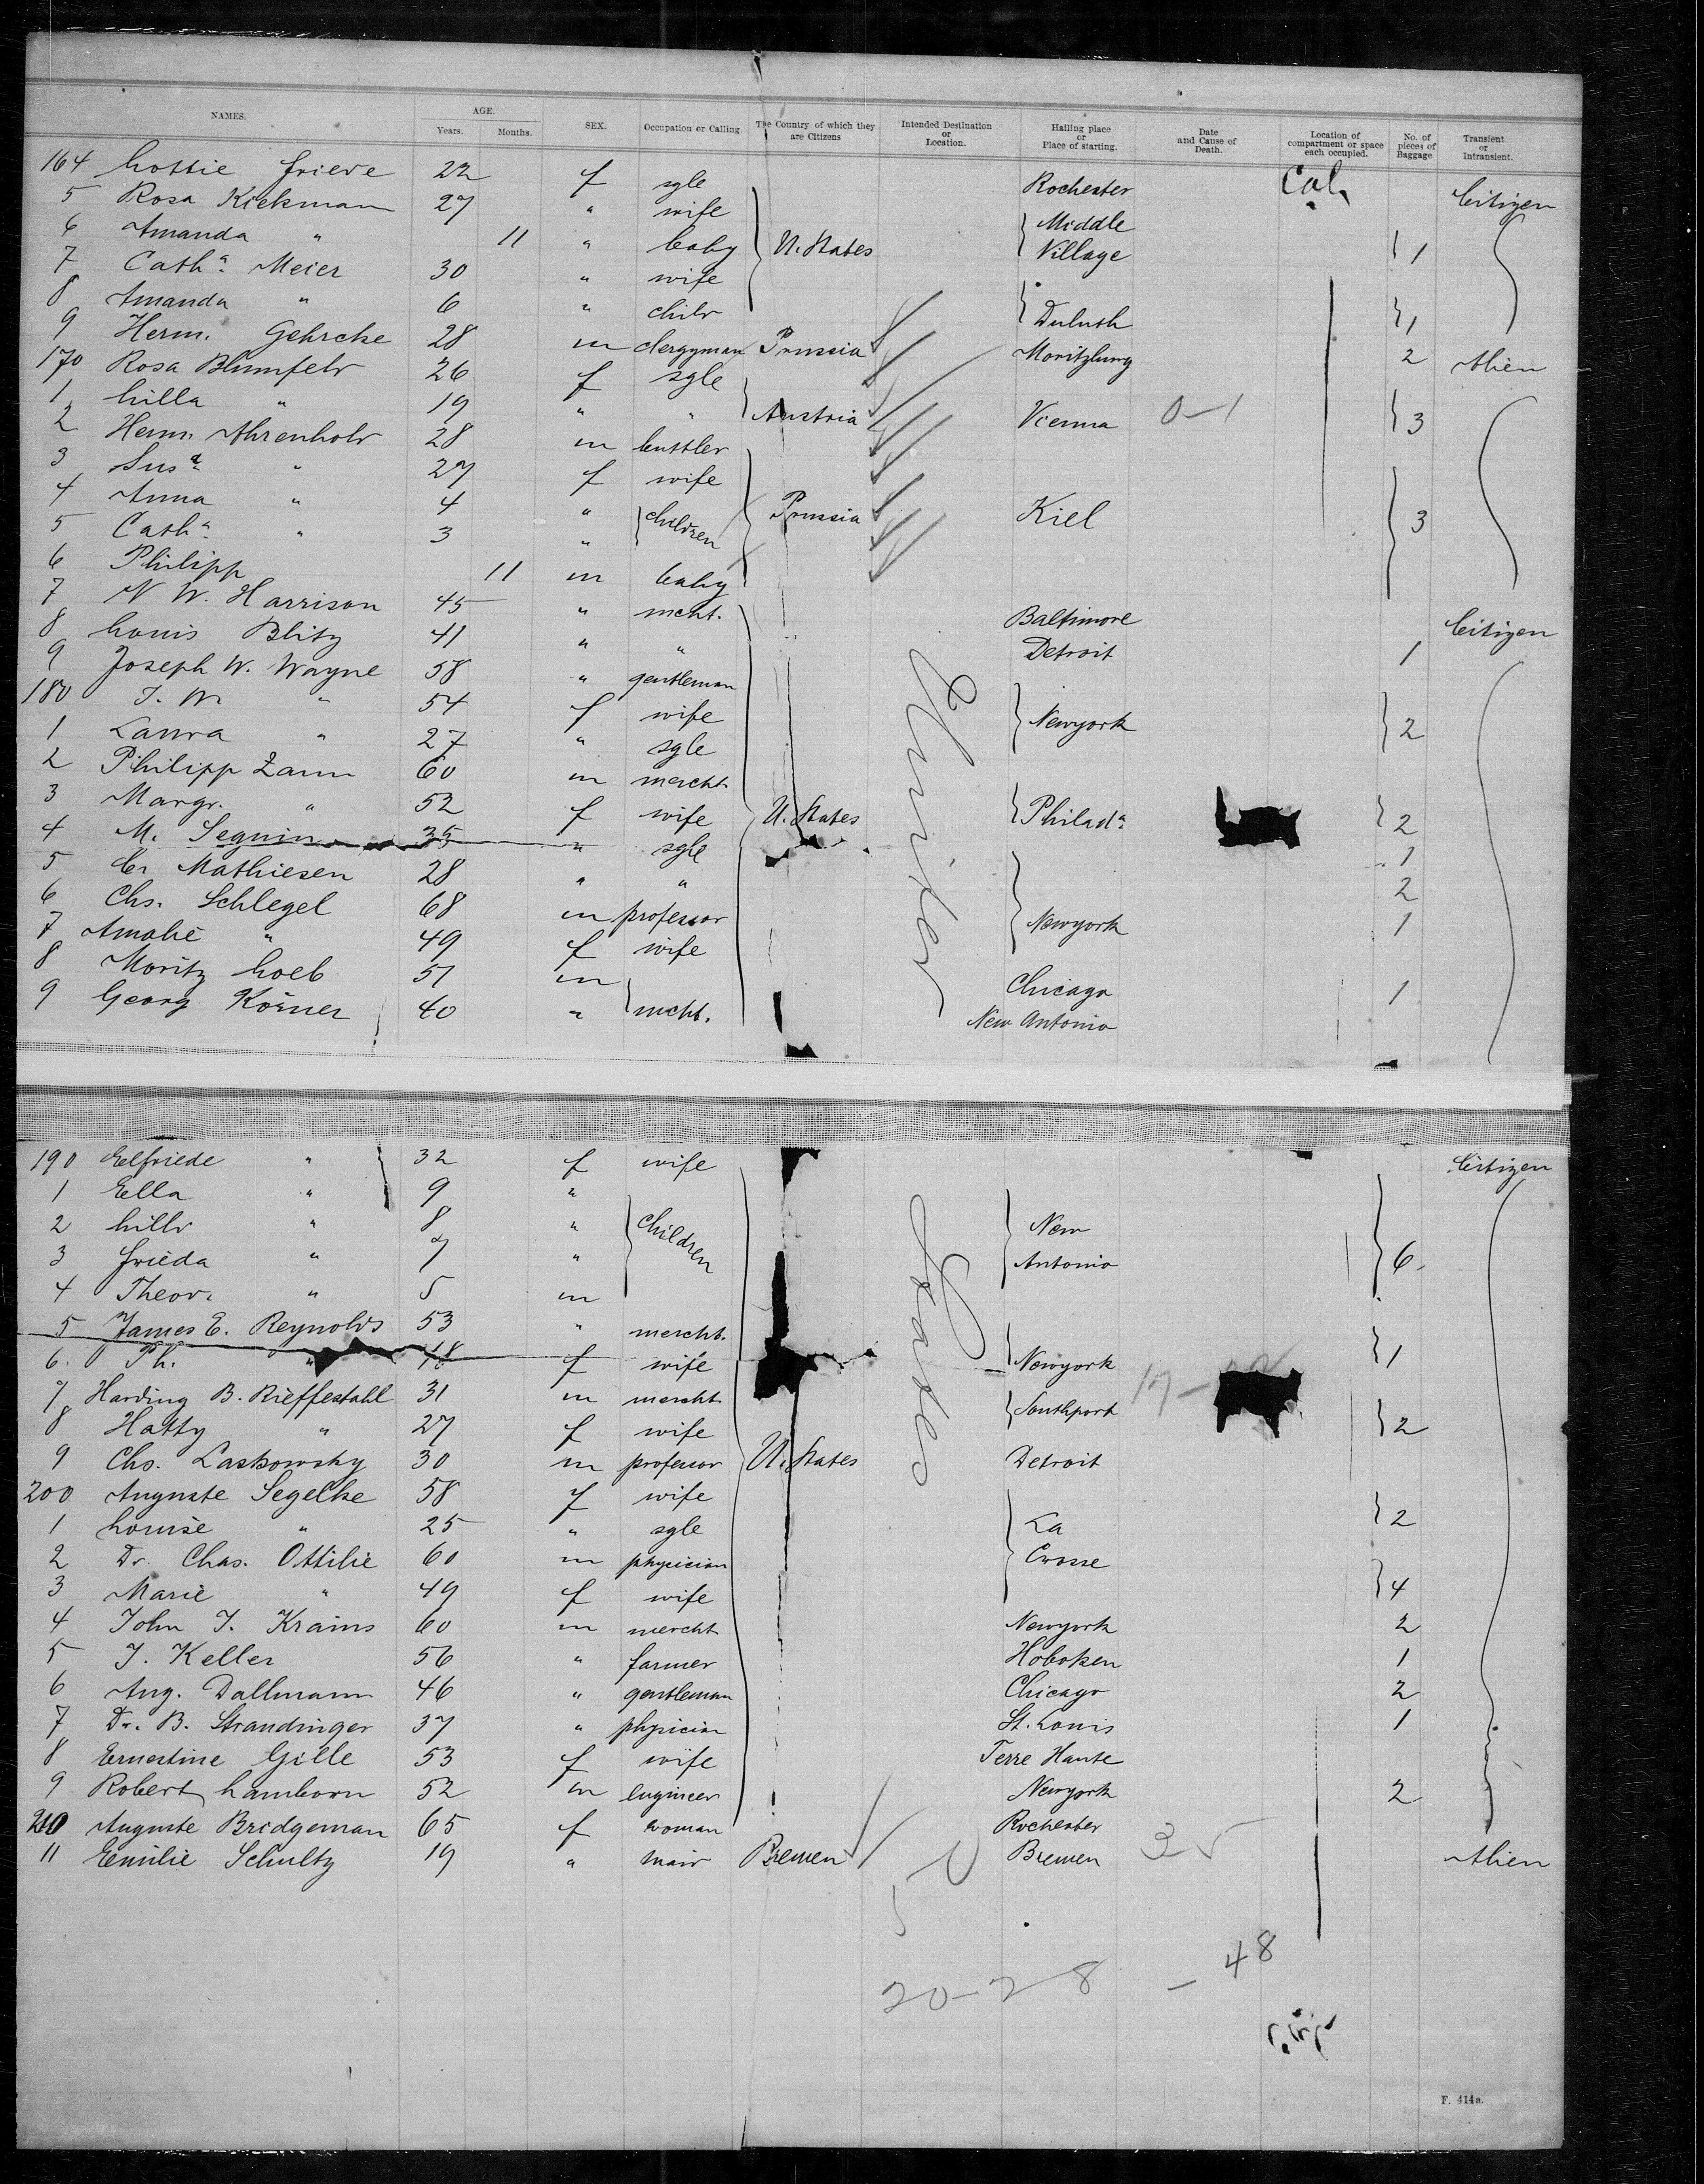 NAMES. AGE. Years. Months. SEX. Occupation or Calling. The Country of which they are Citizens Intended Destination or Location. Hailing place or Place of starting. Date and Cause of Death. Location of compartment or space each occupied. No. of pieces of Baggage Transient or Intransient.
164 Lottie Frieve 22 f sgle Rochester Cab. Citizen
5 Rosa Kiekmann 27 " wife Middle
6 Amanda " 11 " baby U. States Village 1
7 Cath:a Meier 30 " wife
8 Amanda " 6 " child Duluth 1
9 Herm. Gehrcke 28 m clergyman Prussia Moritzburg 2 Alien
170 Rosa Blumfeld 26 f sgle
1 Lilla " 19 " " Austria Vienna 0-1 3
2 Herm. Ahrenhold 28 m buttler
3 Sus:a " 27 f wife
4 Anna " 4 " children Prussia Kiel 3
5 Cath:a " 3 "
6 Philipp 11 m baby
7 N W. Harrison 45 " mcht. Baltimore Citizen
8 Louis Blitz 41 " " Detroit 1
9 Joseph W. Wayne 58 " gentleman
180 J. W. " 54 f wife Newyork 2
1 Laura " 27 " sgle
2 Philipp Zann 60 m mercht.
3 Margr. " 52 f wife U. States Philad:a 2
4 M. Seguin 35 " sgle 1
5 Cr. Mathiesen 28 " " 2
6 Chs. Schlegel 68 m professor Newyork 1
7 Amalie " 49 f wife
8 Moritz Loeb 51 m mcht. Chicago 1
9 Georg Körner 40 " New Antonio
United
190 Elfriede " 32 f wife Citizen
1 Ella " 9 "
2 Lilly " 8 " children New
3 Frieda " 7 " Antonio 6
4 Theod. " 5 m
5 James E. Reynolds 53 " mercht.
6 Ph. " 48 f wife Newyork 1
7 Harding B. Rieffestahl 31 m mercht. Southport 17-
8 Hatty " 27 f wife 2
9 Chs. Laskowsky 30 m professor U. States Detroit
200 Auguste Segelke 58 f wife
1 Louise " 25 " sgle La 2
2 Dr. Chas. Ottilie 60 m physician Crosse
3 Marie " 49 f wife 4
4 John J. Krains 60 m mercht Newyork 2
5 J. Keller 56 " farmer Hoboken 1
6 Aug. Dallmann 46 " gentleman Chicago 2
7 Dr. B. Strandinger 37 " physician St. Louis 1
8 Ernestine Gille 53 f wife Terre Haute
9 Robert Lamborn 52 m Engineer Newyork 2
210 Auguste Bridgeman 65 f woman Rochester
11 Emilie Schultz 19 " maid Bremen Bremen Alien
States
20-28 - 48
F. 414a.